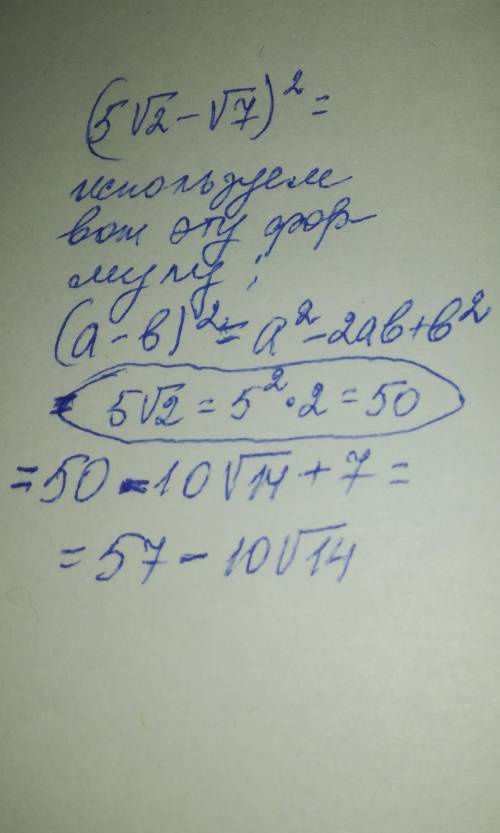 (5√2-√7)²=
используем
вот эту фор-
мулу:
(а-в)²=а²-2ав+в²
5√2=5²·2=50
=50-10√14+7=
=57-10√14